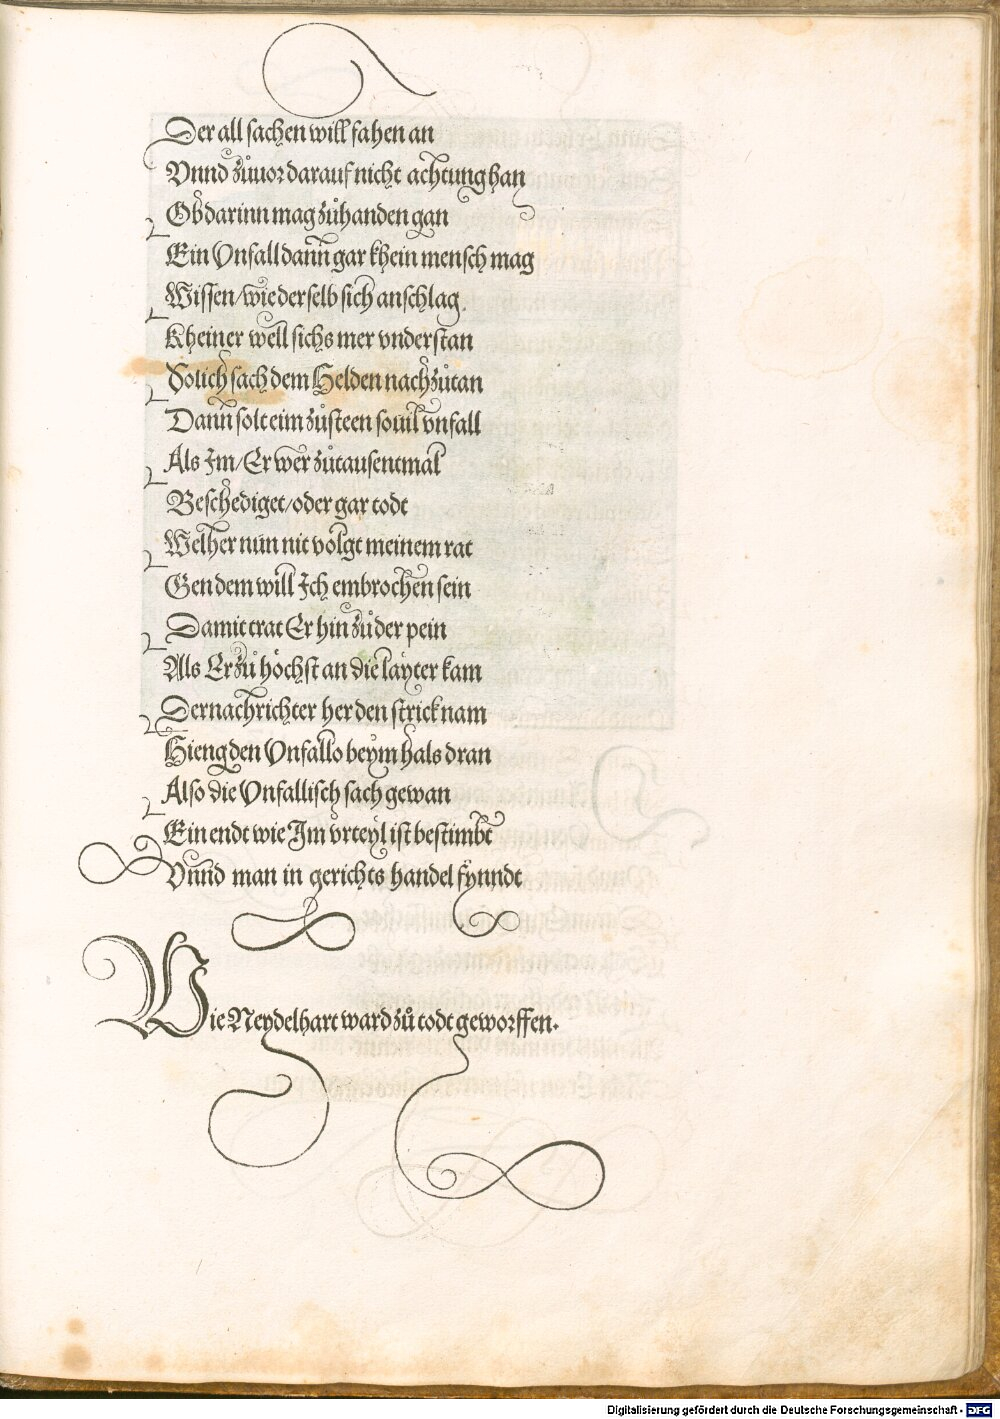 Der all sachen will fahen an
Vnnd zůuor darauf nicht achtung han
Ob darinn mag zůhanden gan
Ein Vnfall dann gar khein mensch mag
Wissen/wie derselb sich anschlag.
Kheiner well sichs mer vnderstan
Solich sach dem Helden nachzůtan
Dann solt eim zůsteen souil vnfall
Als Im/Er wer zůtausentmal
Beschediget/oder gar todt
Welher nun nit volgt meinem rat
Gen dem will Ich embrochen sein
Damit trat Er hin zů der pein
Als Er zů höchst an die layter kam
Der nachrichter her den strick nam
Hieng den Vnfallo beym hals dran
Also die Vnfallisch sach gewan
Ein endt wie Im vrteyl ist bestimbt
Vnnd man in gerichts handel fynndt
Wie Neydelhart ward zů todt geworffen.
Digitalisierung gefördert durch die Deutsche Forschungsgemeinschaft - DFG